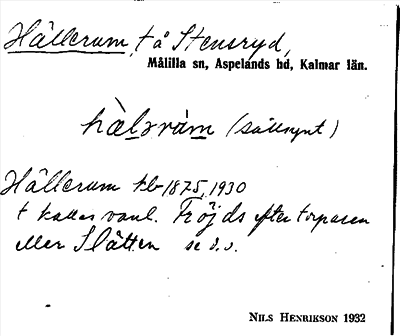 Hällerum, t å Stensryd,
Målilla sn, Aspelands hd, Kalmar län.
hàlərùm (sällsynt)
Hällerum tlb 1875, 1930
t kallas vanl. Fröjds efter torparen
eller Slätten se d.o.
NILS HENRIKSON 1932